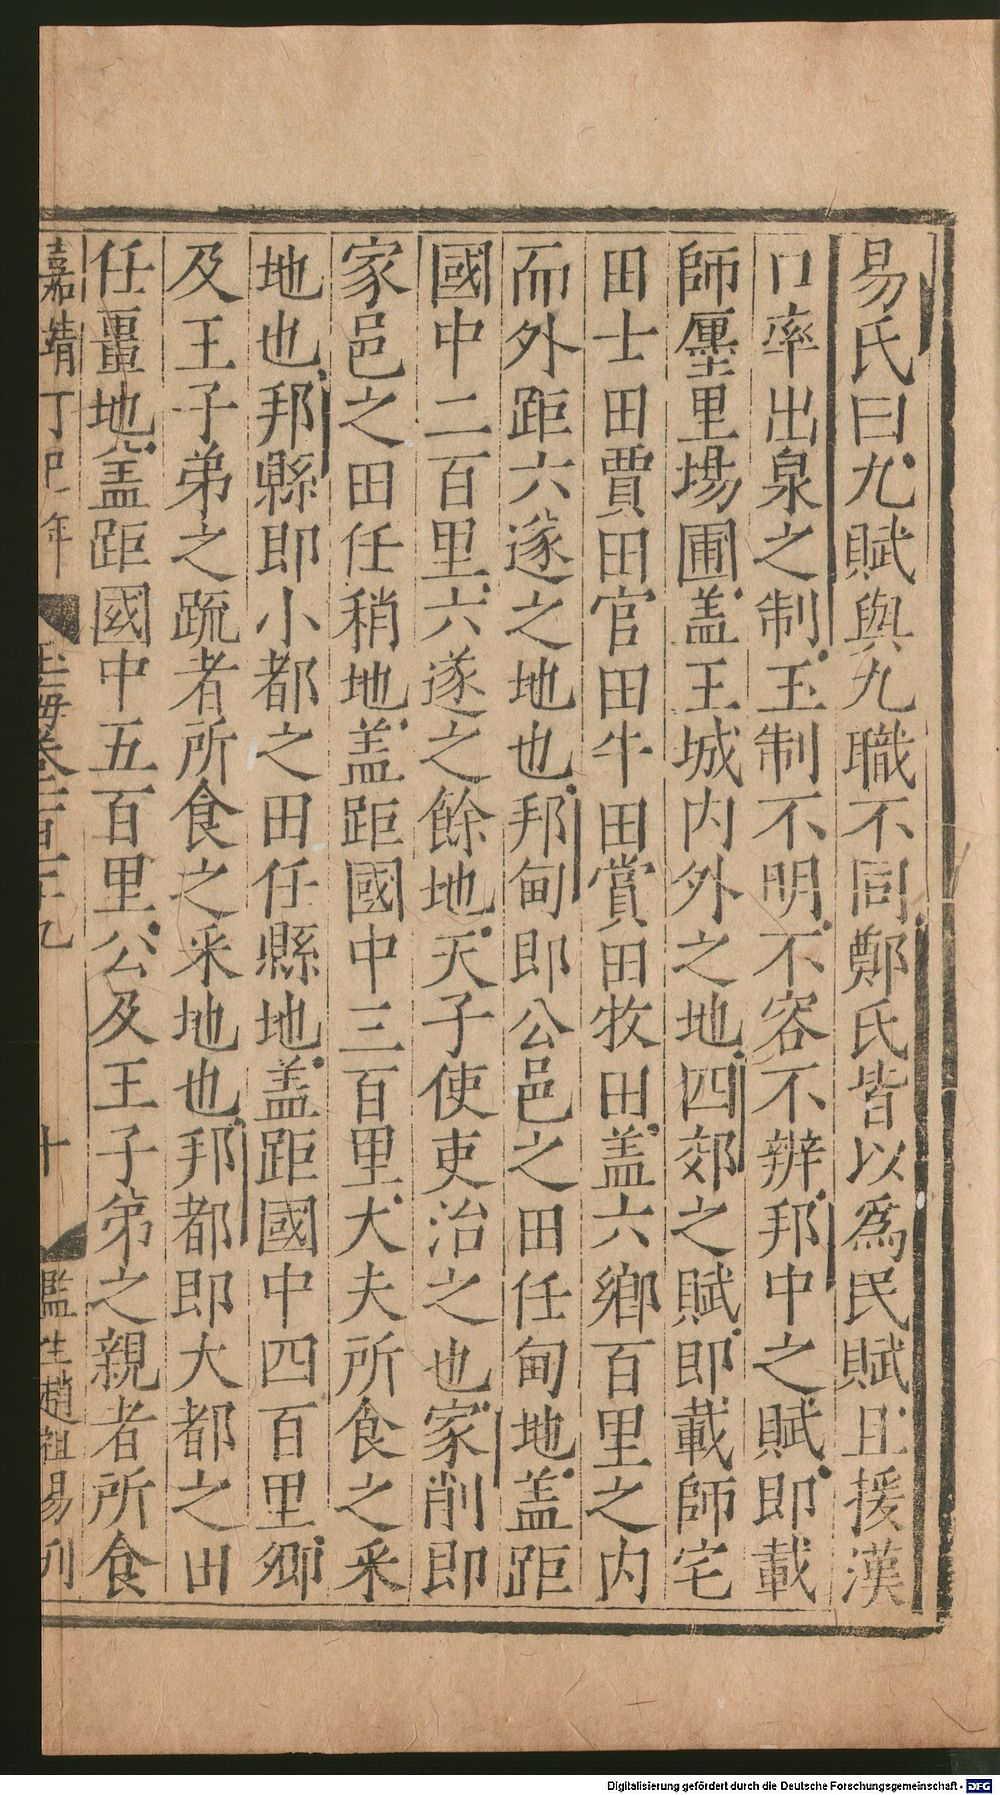 易氏曰九賦與九職不同鄭氏皆以爲民賦且援漢
口率出泉之制王制不明不容不辨邦中之賦即載
師廛里場圃盖王城内外之地四郊之賦即載師宅
田士田賈田官田牛田賞田牧田盖六鄉百里之内
而外距六遂之地也邦甸即公邑之田任甸地盖距
國中二百里六遂之餘地天子使吏治之也家削即
家邑之田任稍地盖距國中三百里大夫所食之采
地也邦縣即小都之田任縣地盖距國中四百里卿
及王子弟之䟽者所食之采地也邦都即大都之田
任畺地盖距國中五百里公及王子弟之親者所食
嘉靖丁巳年 玉海卷一百三九 十 監生趙祖易刊
Digitalisierung gefördert durch die Deutsche Forschungsgemeinschaft - DFG